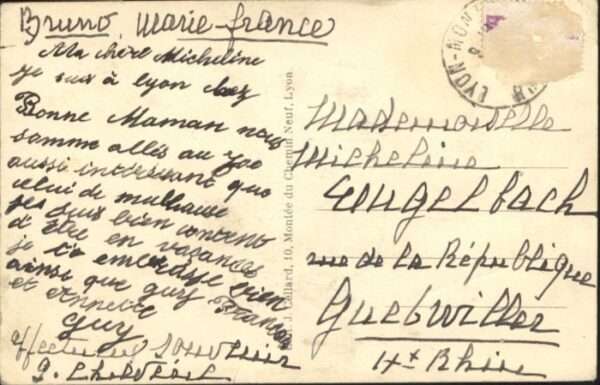 Bruno, Marie-france
Ma chère Micheline
je suis à lyon chez
Bonne Maman nous
somme allés au zoo
aussi intéressant que
celui de mulhouse
je suis bien content
d'être en vacances
je t'embrasse bien
ainsi que guy Francois
et Annette
guy
affectueux souvenir
J. Cellard, 10, Montée du Chemin Neuf, Lyon
LYON-MON
Mademoiselle
Micheline
Engelbach
rue de la République
Guebwiller
Ht Rhin